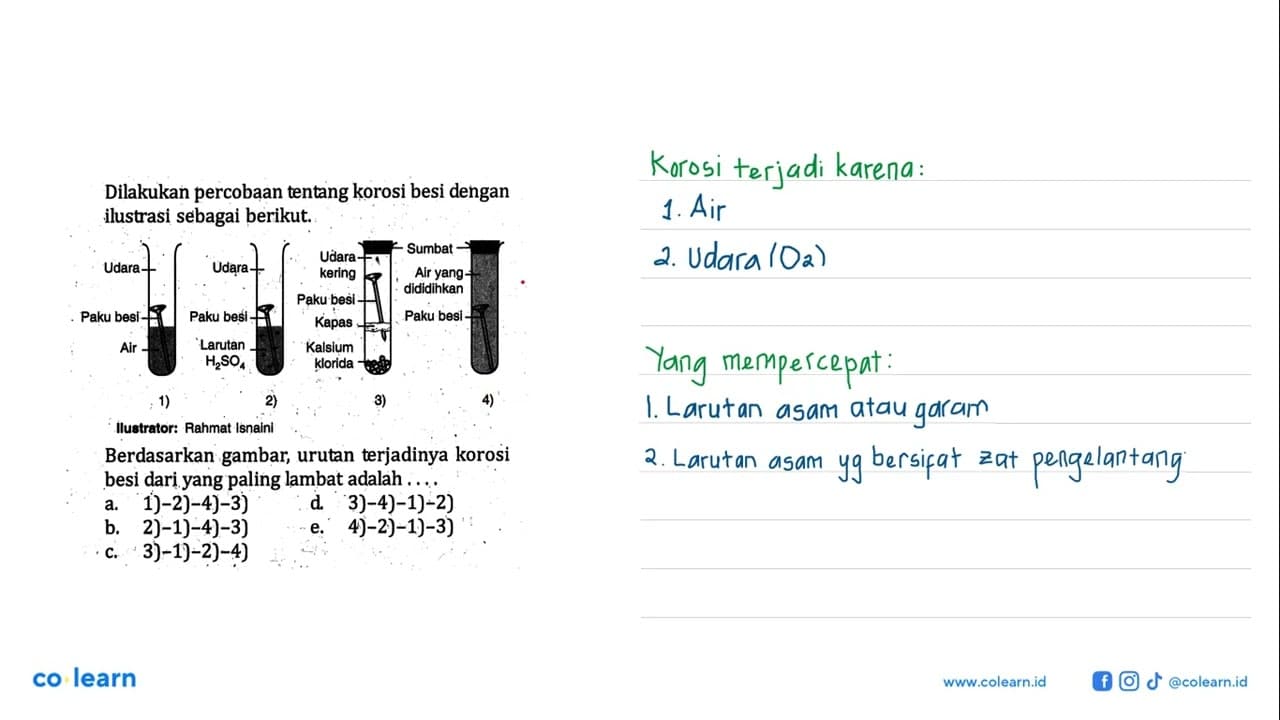 Dilakukan percobaan tentang korosi besi dengan
ilustrasi sebagai berikut.
Udara
Paku besi
Air
1)
Udara
Paku besi
Larutan
H₂SO₄
2)
Udara
kering
Paku besi
Kapas
Kalsium
klorida
3)
Sumbat
Air yang
dididihkan
Paku besi
4)
Ilustrator: Rahmat Isnaini
Berdasarkan gambar, urutan terjadinya korosi
besi dari yang paling lambat adalah . . . .
a. 1)-2)-4)-3)
b. 2)-1)-4)-3)
c. 3)-1)-2)-4)
d. 3)-4)-1)-2)
e. 4)-2)-1)-3)
Korosi terjadi karena:
1. Air
2. Udara (O₂)
Yang mempercepat:
1. Larutan asam atau garam
2. Larutan asam yg bersifat zat pengelantang
co learn
www.colearn.id
@colearn.id